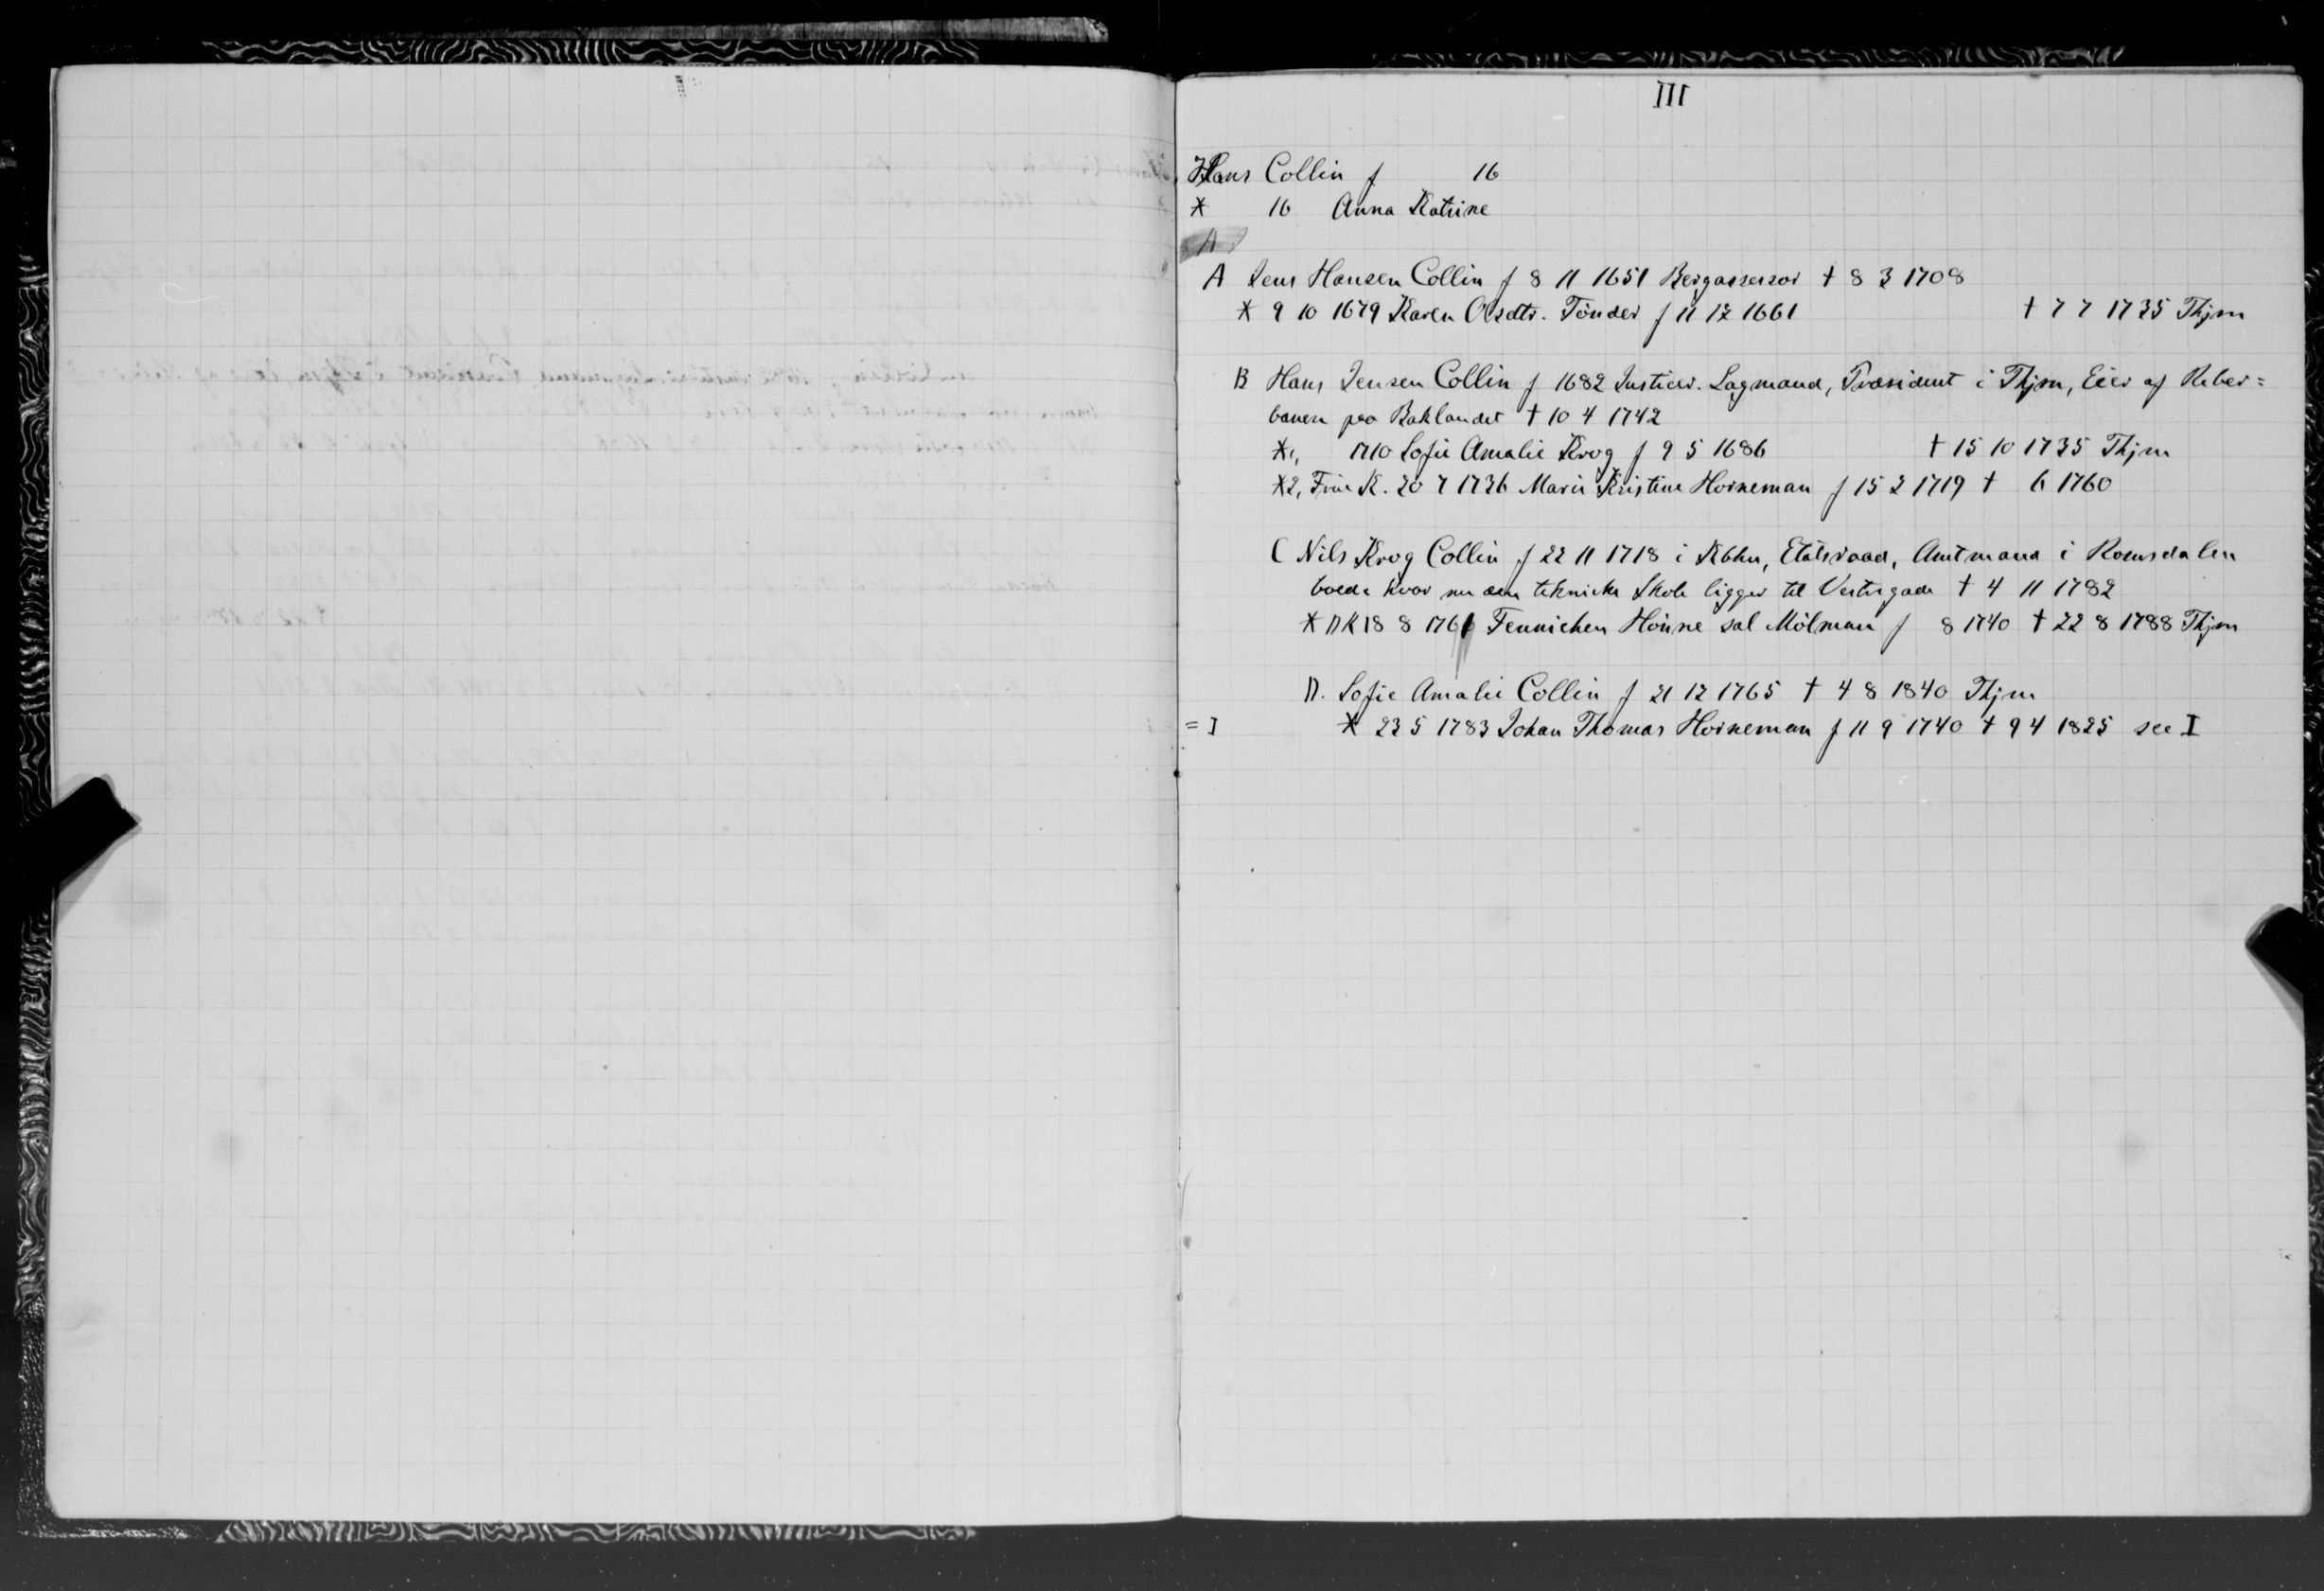 III
Hans Collin f 16
* 16 Anna Katrine
A
A Jens Hansen Collin f 8 11 1651 Bergassessor † 8 3 1708
* 9 10 1679 Karen Olsdtr. Tönder f 11 12 1661 † 7 7 1735 Thjm
B Hans Jensen Collin f 1682 Justicer. Lagmand, Præsident i Thjm, Eier af Reber=
banen paa Baklandet † 10 4 1742
*1, 1710 Sofie Amalie Krog f 9 5 1686 † 15 10 1735 Thjm
*2, Frue K. 20 7 1736 Marie Kristine Horneman f 15 2 1719 † 6 1760
C Nils Krog Collin f 22 11 1718 i Kbhn, Etatsraad, Amtmand i Romsdalen
boede hvor nu den tekniske Skole ligger til Vestergade † 4 11 1782
* D K 18 8 1761 Fennichen Hörne sal Mölman f 8 1740 † 22 8 1788 Thjm
D. Sofie Amalie Collin f 21 12 1765 † 4 8 1840 Thjm
= I * 23 5 1783 Johan Thomas Horneman f 11 9 1740 † 9 4 1825 see I